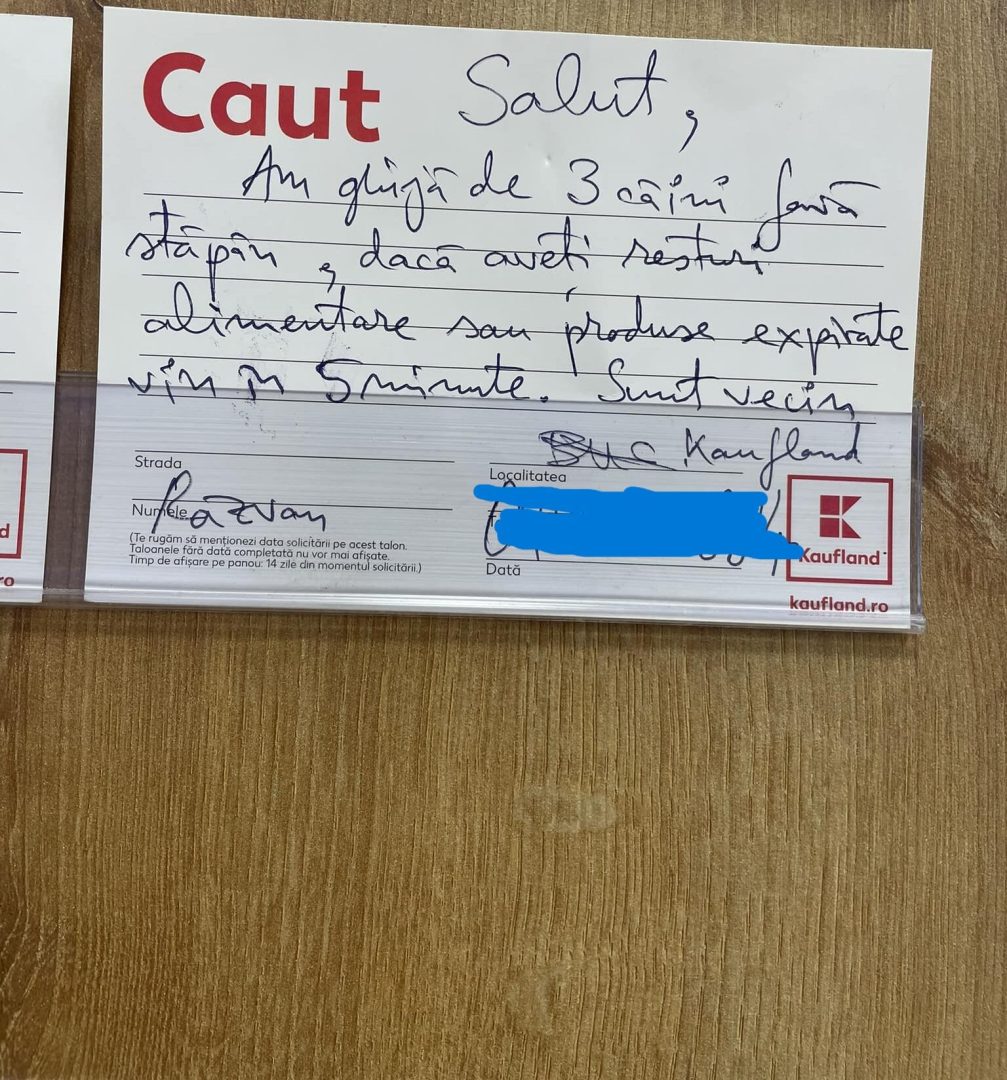 Caut
Salut,
Am ghijă de 3 câini fară
stăpân, dacă aveți resturi
alimentare sau produse expirate
vin în 5 minute. Sunt vecin
BUC Kaufland
Strada
Localitatea
Numele Razvan
(Te rugăm să menționezi data solicitării pe acest talon.
Taloanele fără dată completată nu vor mai afișate.
Timp de afișare pe panou: 14 zile din momentul solicitării.)
Dată
Kaufland
kaufland.ro
d
ro